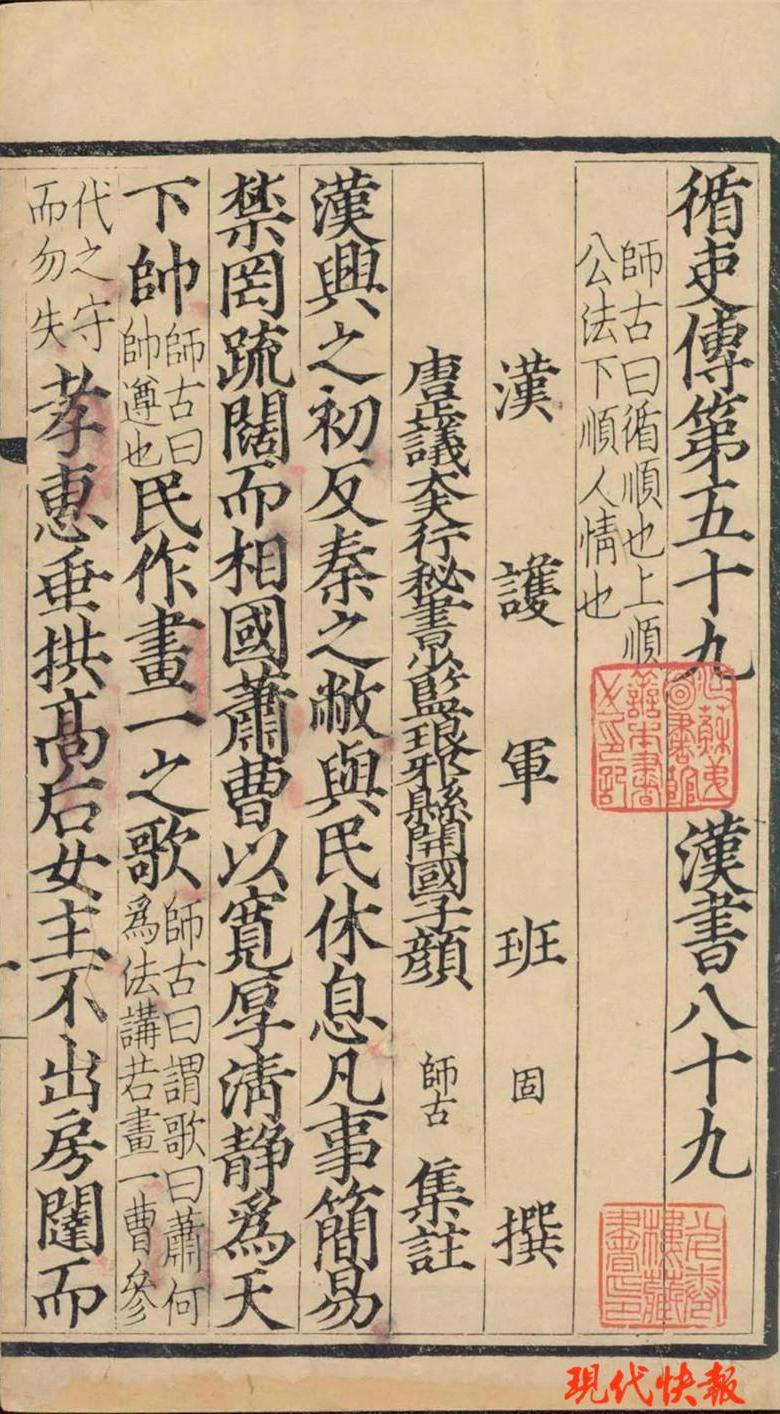 循吏傳第五十九 漢書八十九
師古曰循順也上順
公法下順人情也
漢護軍班固撰
唐正議大夫行秘書少監琅邪縣開國子顏師古集註
漢興之初反秦之敝與民休息凡事簡易
禁罔疏闊而相國蕭曹以寬厚清靜爲天
下帥師古曰帥遵也民作畫一之歌師古曰謂歌曰蕭何爲法講若畫一曹參
代之守而勿失孝惠垂拱髙后女主不出房闥而
圖書館
善本書
之印記
樓藏
現代快報